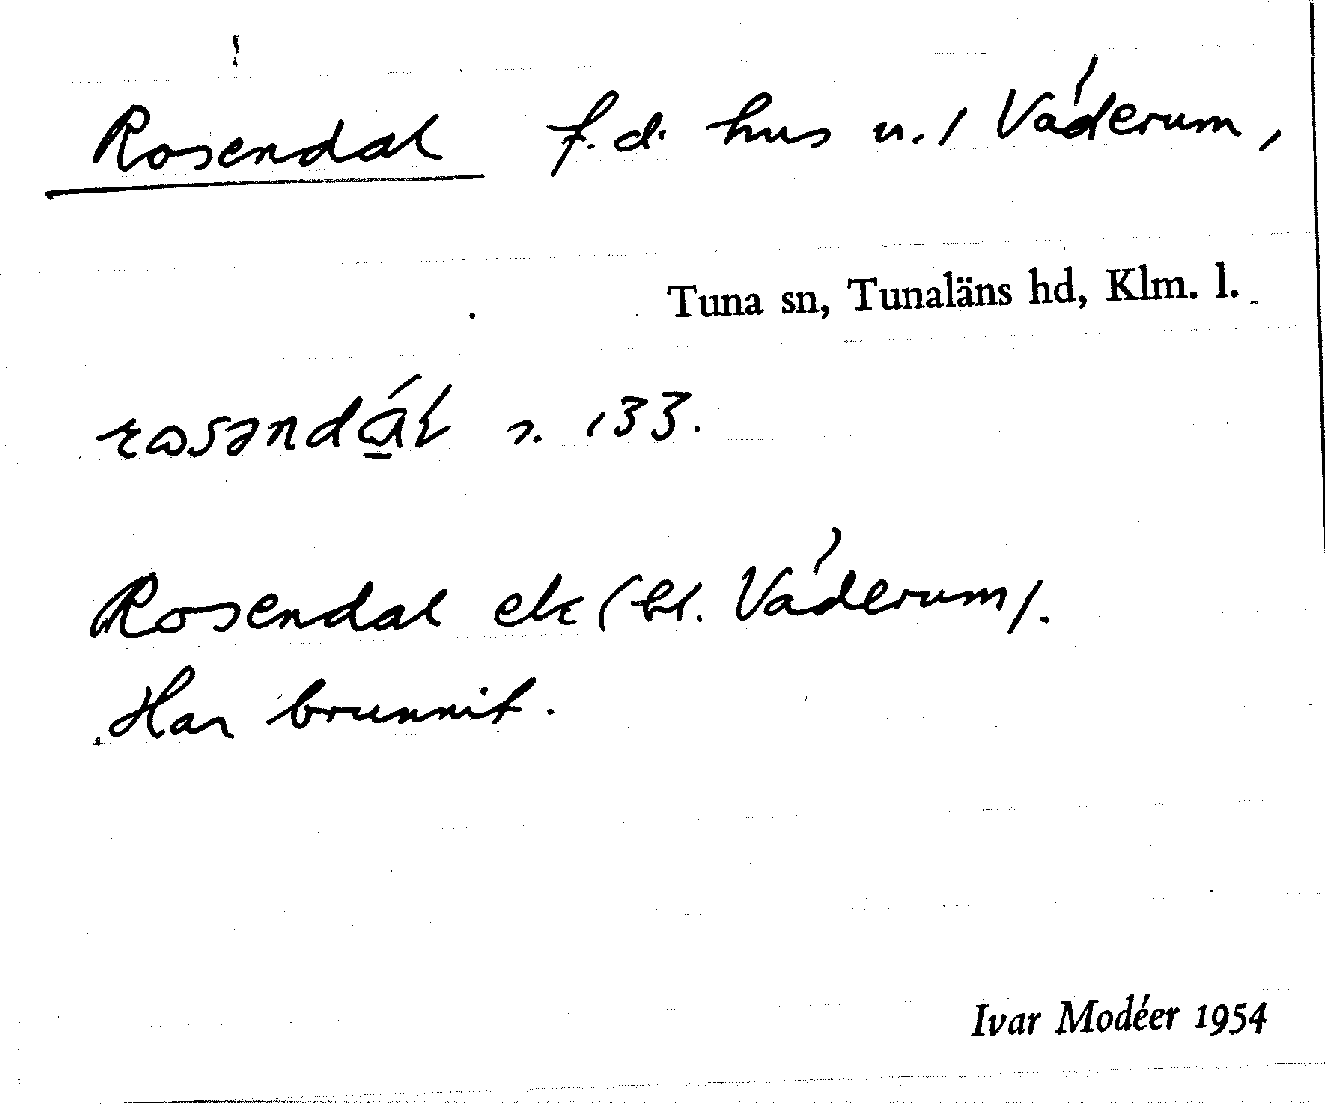 Rosendal f.d. hus u./ Väderum,
Tuna sn, Tunaläns hd, Klm. l.
rosəndál s. 133.
Rosendal ek (bl. Väderum).
Har brunnit.
Ivar Modéer 1954